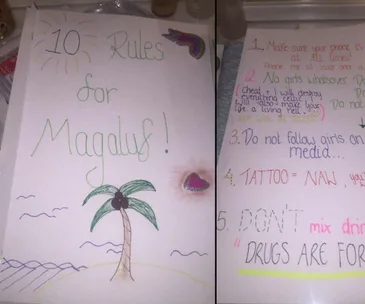 10 Rules
for
Magaluf!
1. Make sure your phone is
at all times!
2. No girls whatsoever
Cheat + I will destroy
everything
will also make your
life a living hell
Do not
3. Do not follow girls on
media...
4. TATTOO = NAW, you
5. DON'T mix drin
"DRUGS ARE FOR